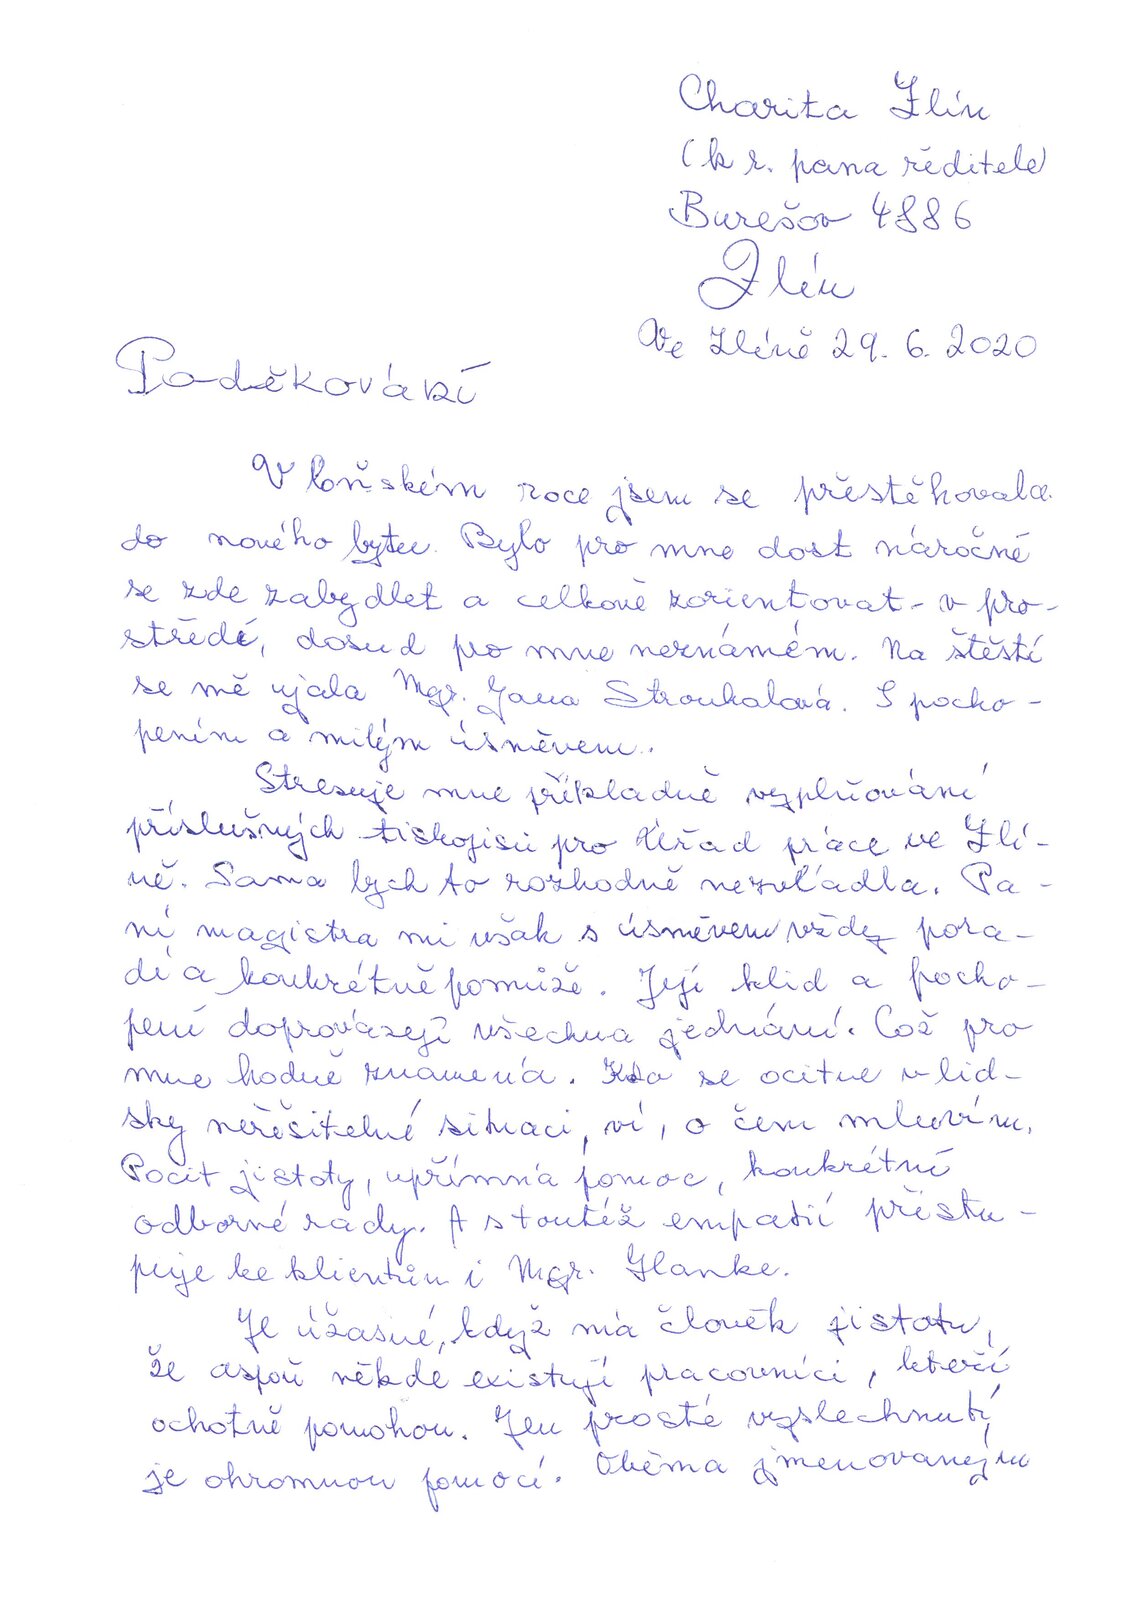 Charita Zlín
(k r. pana ředitele)
Burešov 4886
Zlín
Ve Zlíně 29. 6. 2020
Poděkování
V loňském roce jsem se přestěhovala
do nového bytu. Bylo pro mne dost náročné
se zde zabydlet a celkově zorientovat - v pro-
středí, dosud pro mne neznámém. Na štěstí
se mě ujala Mgr. Jana Stroukalová. S pocho-
pením a milým úsměvem.
Stresuje mne příkladně vyplňování
příslušných tiskopisů pro Úřad práce ve Zlí-
ně. Sama bych to rozhodně nezvládla. Pa-
ní magistra mi však s úsměvem vždy pora-
dí a konkrétně pomůže. Její klid a pocho-
pení doprovázejí všechna jednání. Což pro
mne hodně znamená. Kdo se ocitne v lid-
sky neřešitelné situaci, ví, o čem mluvím.
Pocit jistoty, upřímná pomoc, konkrétní
odborné rady. A s toutéž empatií přistu-
puje ke klientům i Mgr. Hanke.
Je úžasné, když má člověk jistotu,
že aspoň někde existují pracovníci, kteří
ochotně pomohou. Jen prosté vyslechnutí,
je ohromnou pomocí. Oběma jmenovaným